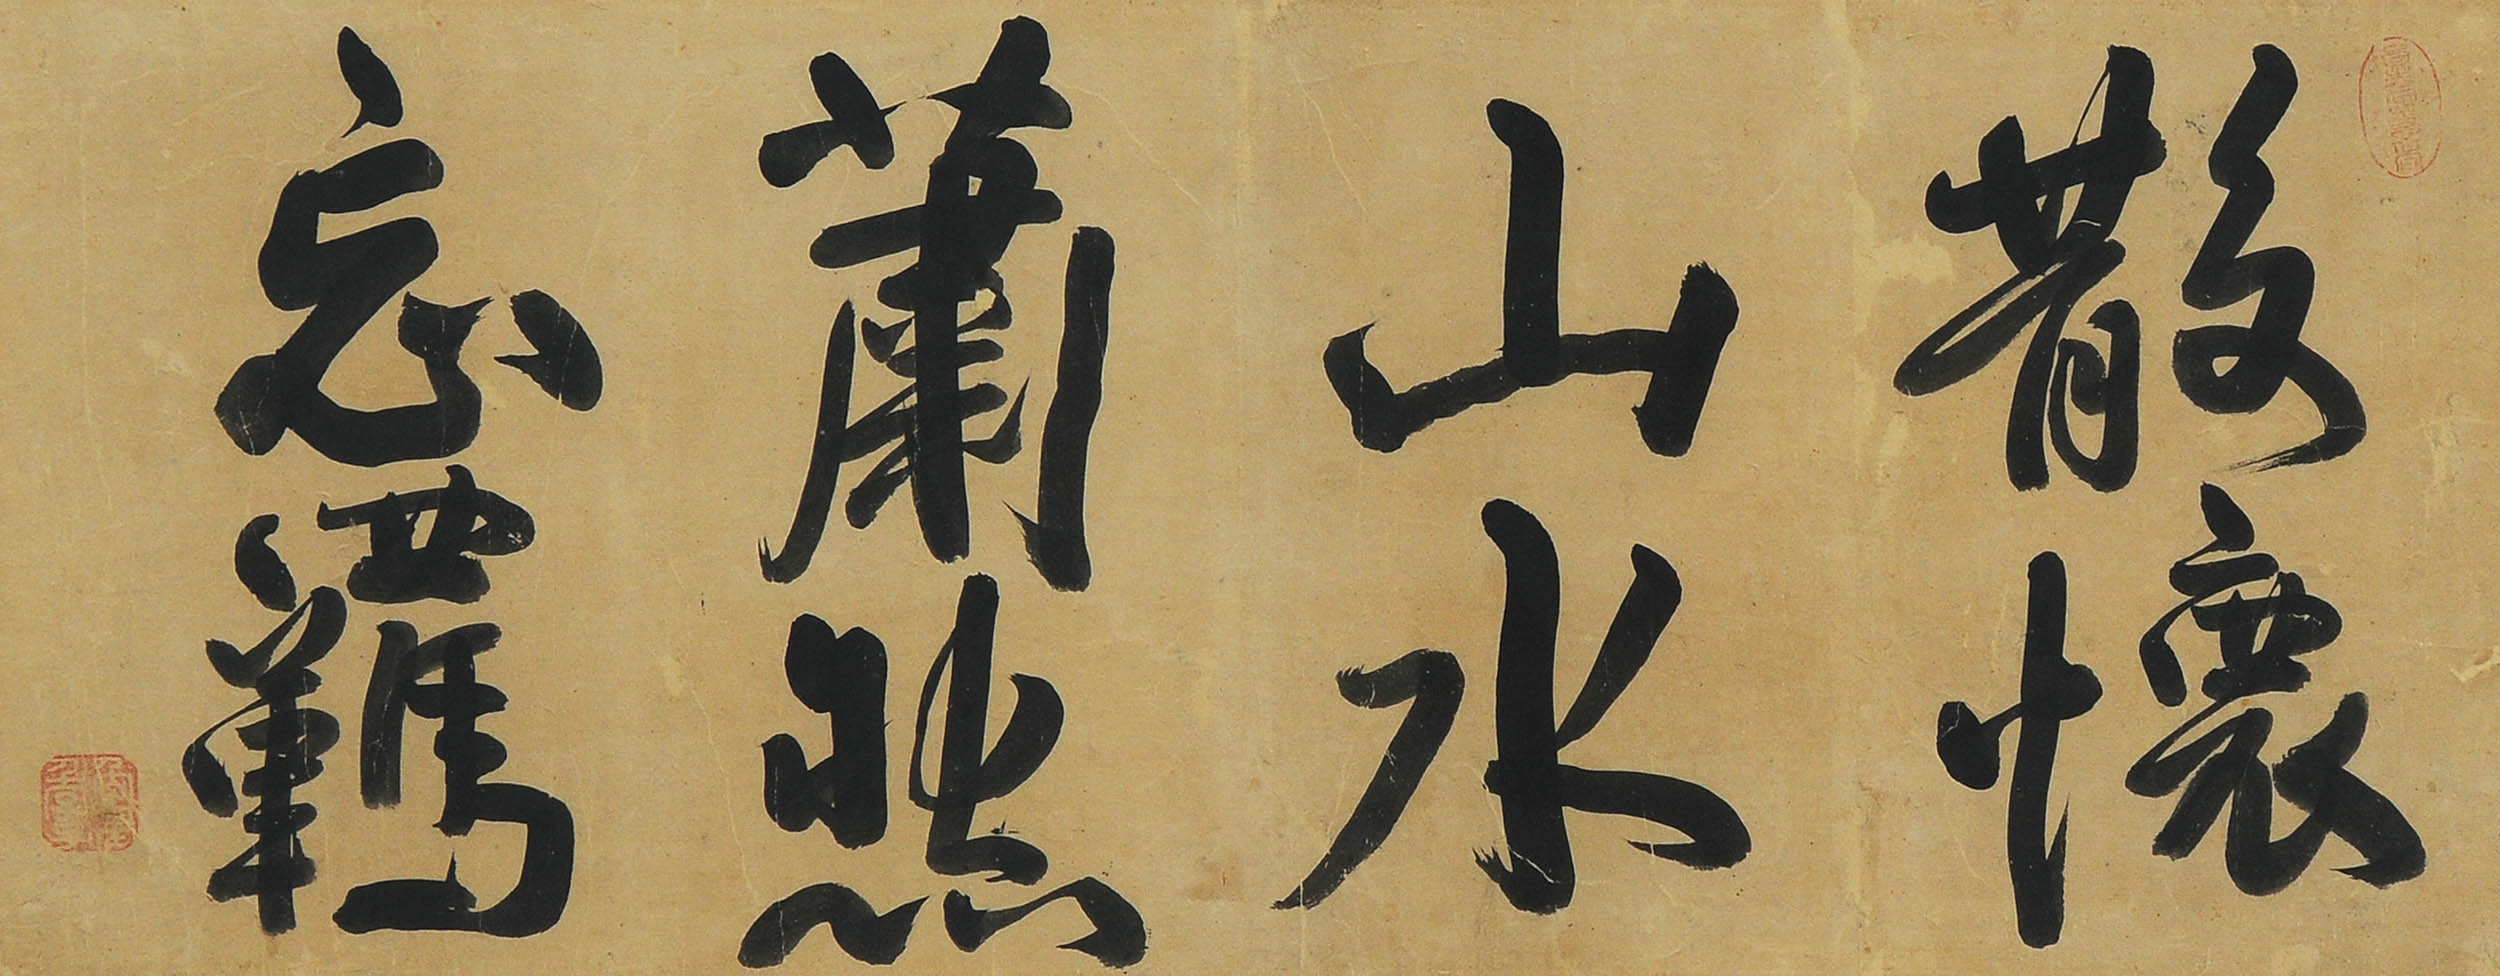 散懷
山水
蕭然
忘羈